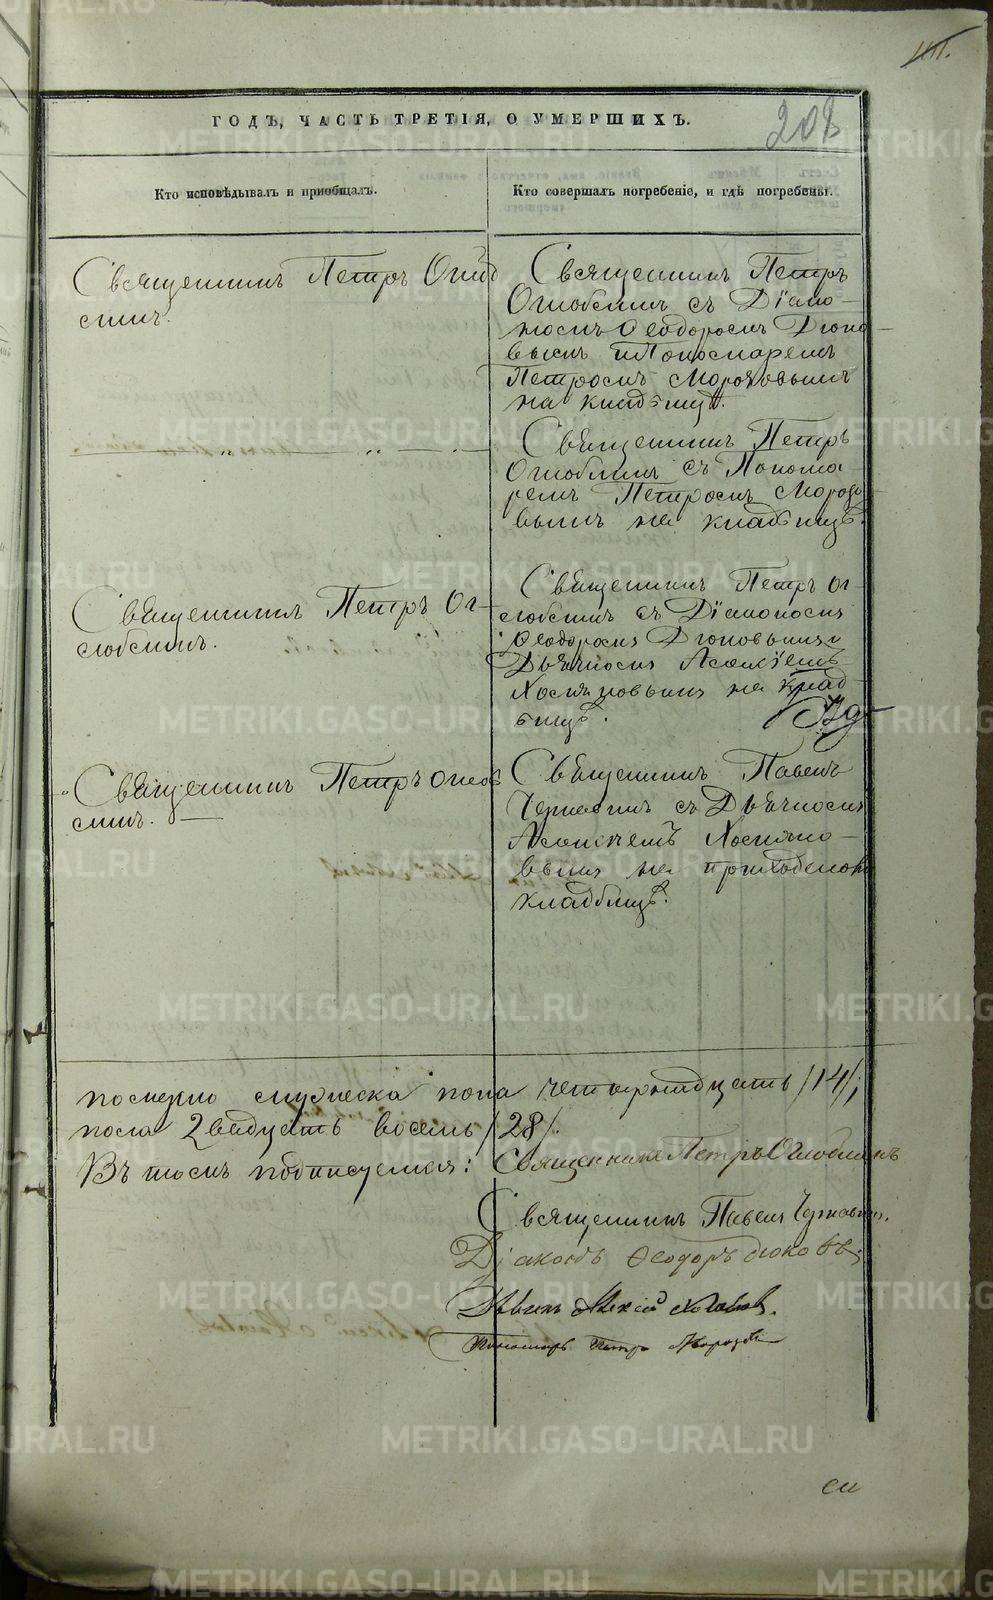 208
ГОДЪ, ЧАСТЬ ТРЕТІЯ, О УМЕРШИХЪ.
Кто исповѣдывалъ и пріобщалъ.
Кто совершалъ погребеніе, и гдѣ погребены.
Священникъ Петръ Оглоб
линъ.
Священникъ Петръ
Оглоблинъ съ Діако-
номъ Ѳеодоромъ Дюко-
вымъ и Пономаремъ
Петромъ Морозовымъ
на кладбищѣ.
Священникъ Петръ
Оглоблинъ съ Понома-
ремъ Петромъ Морозо
вымъ на кладбищѣ.
Священникъ Петръ Ог-
лоблинъ.
Священникъ Петръ Ог-
лоблинъ съ Діакономъ
Ѳеодоромъ Дюковымъ и
Дьячкомъ Алексѣемъ
на клад-
бищѣ.
Священникъ Петръ Оглоб
линъ.
Священникъ Павелъ
Чернавинъ съ Дьячкомъ
Алексѣемъ
вымъ на приходском
кладбищѣ.
мужеска пола четырнадцать /14/;
пола двадцать восемь /28/.
Въ томъ подписуемся: Священникъ Петръ Оглоблинъ
Священникъ Павелъ Чернавинъ.
Діаконъ Ѳеодоръ Дюковъ.
Дьячекъ Алексій
Пономарь Петръ Морозовъ
METRIKI.GASO-URAL.RU